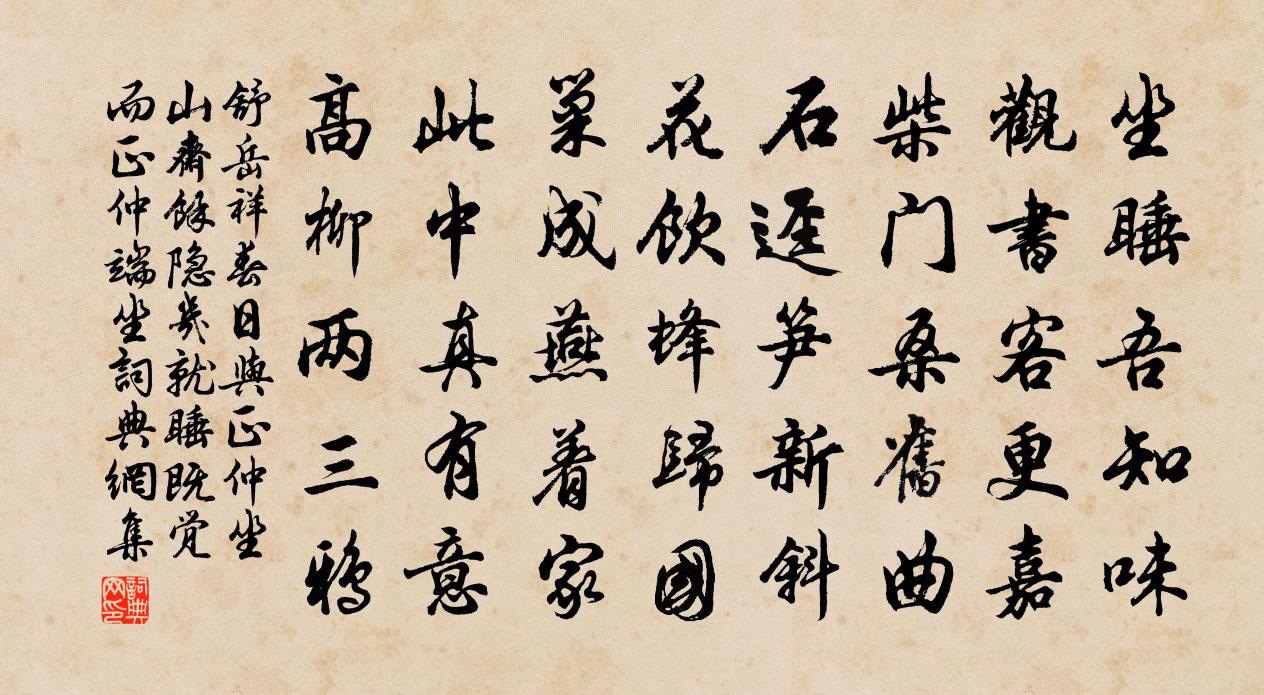 坐睡吾知味
觀書客更嘉
柴門桑舊曲
石逕笋新斜
花飲蜂歸國
巢成燕着家
此中真有意
高柳两三鴉
舒岳祥春日與正仲坐
山齋余隐几就睡既觉
而正仲端坐詞典網集
詞典网印